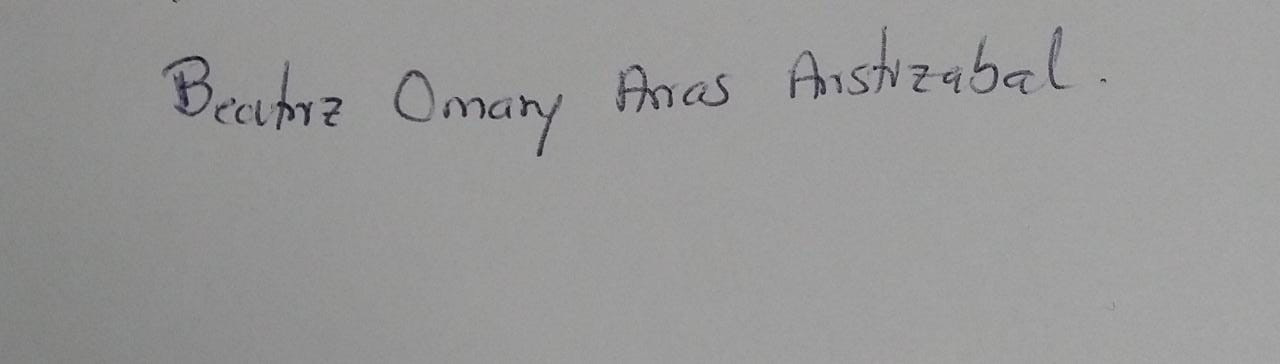 Beatriz Omary Arias Aristizabal.